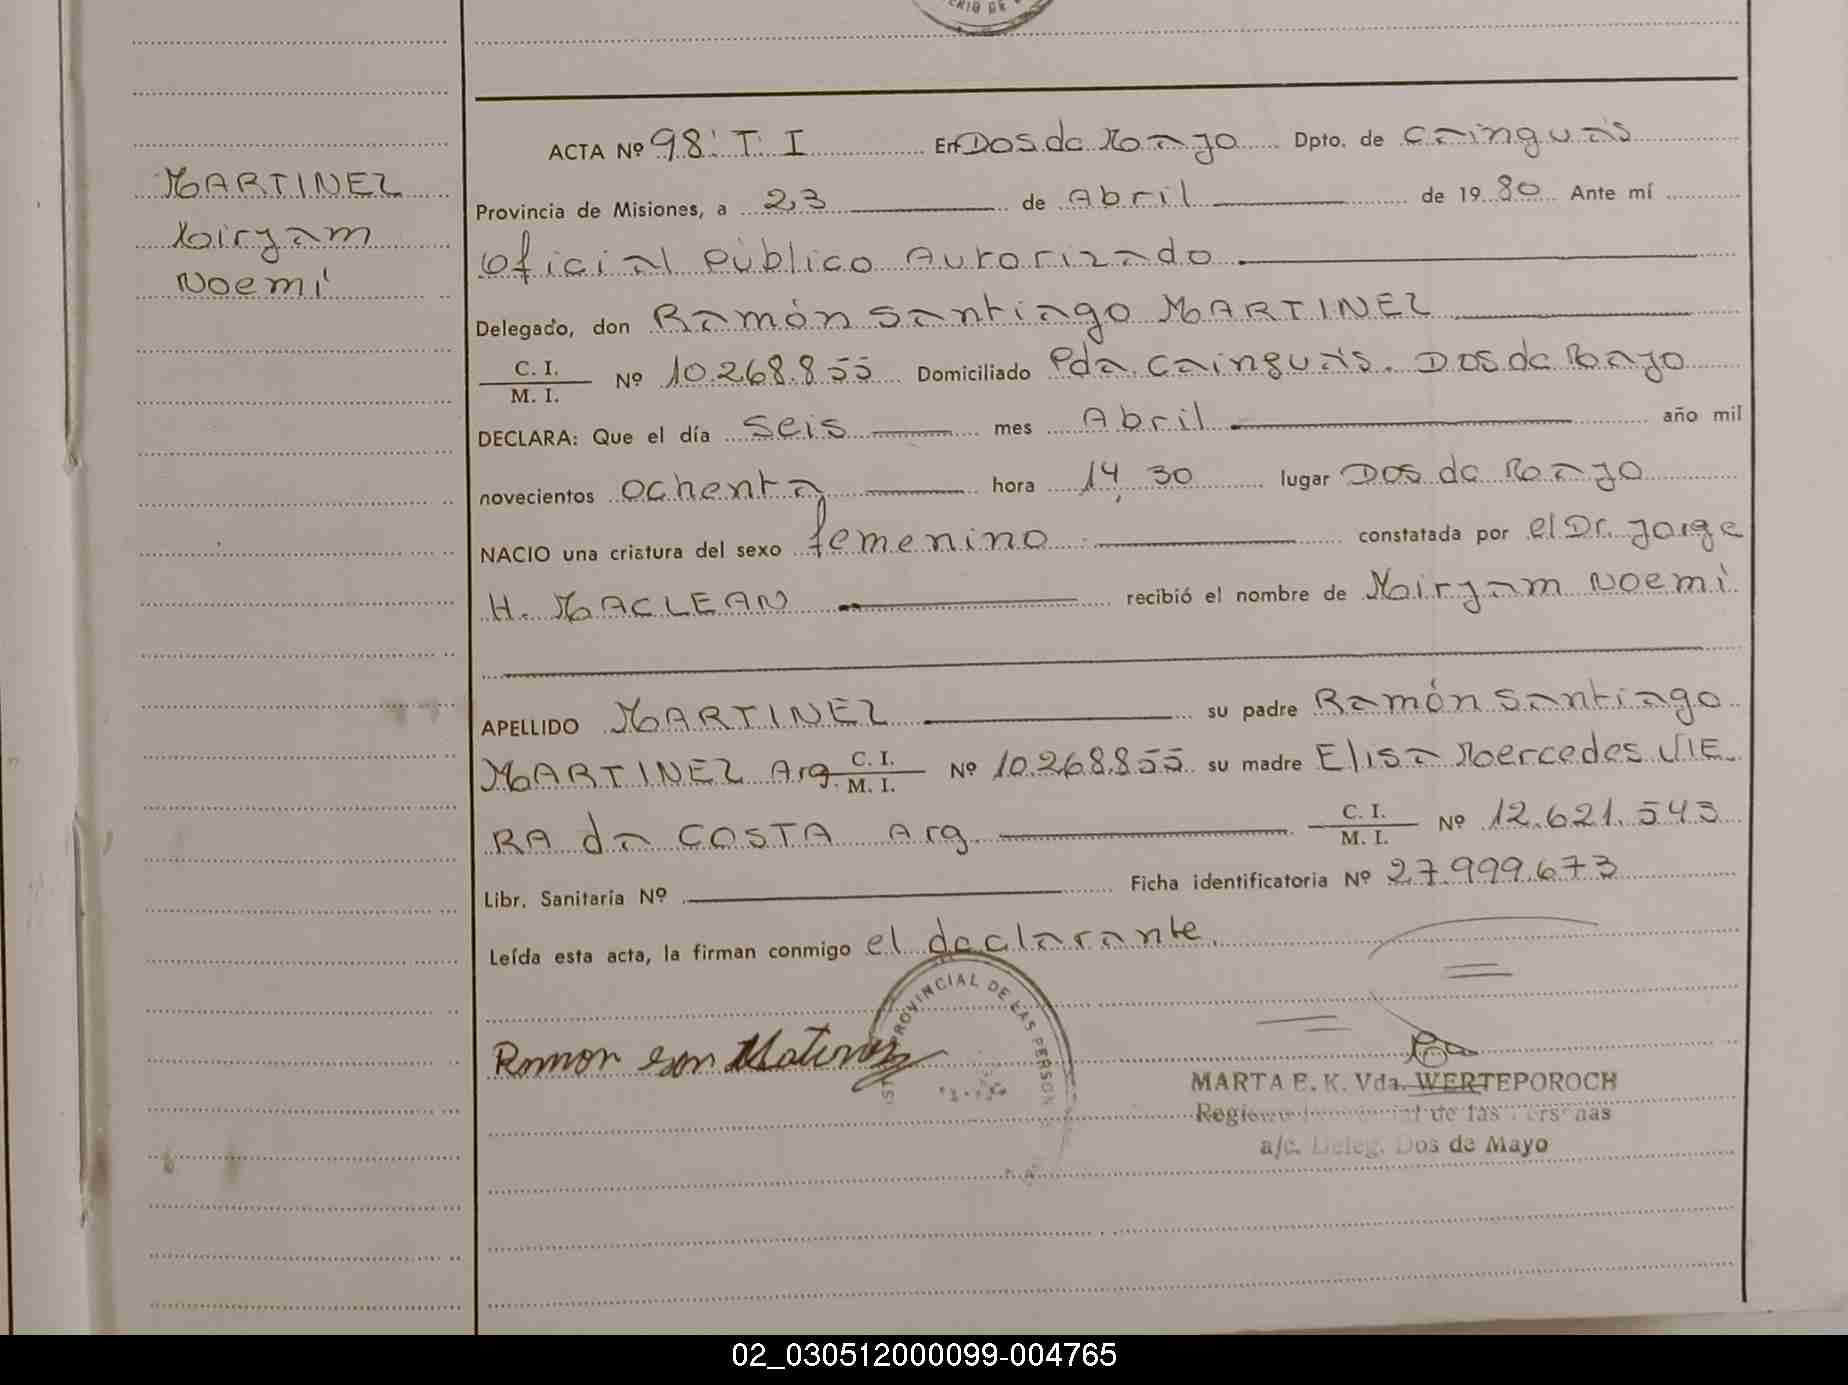 ERIO DE
ACTA Nº 98 T. I En Dos de Mayo Dpto. de Cainguás
MARTINEZ
Miryam
Noemí
Provincia de Misiones, a 23 de Abril de 1980 Ante mí
Oficial Público Autorizado
Delegado, don Ramón Santiago MARTINEZ
C. I.
M. I.
Nº 10.268.855 Domiciliado Pda. Cainguás. Dos de Mayo
DECLARA: Que el día seis mes Abril año mil
novecientos ochenta hora 14,30 lugar Dos de Mayo
NACIO una criatura del sexo femenino constatada por el Dr. Jorge
H. MACLEAN recibió el nombre de Miryam Noemí
APELLIDO MARTINEZ su padre Ramón Santiago
MARTINEZ Arg. C. I. M. I. Nº 10.268.855 su madre Elisa Mercedes VIE
RA da COSTA Arg. C. I. M. I. Nº 12.621.543
Libr. Sanitaria Nº Ficha identificatoria Nº 27.999.673
Leída esta acta, la firman conmigo el declarante.
PROVINCIAL DE LAS PERSON
Ramon san Matinez
MARTA E. K. Vda. WERTEPOROCH
de las
a/c. Deleg. Dos de Mayo
02_030512000099-004765